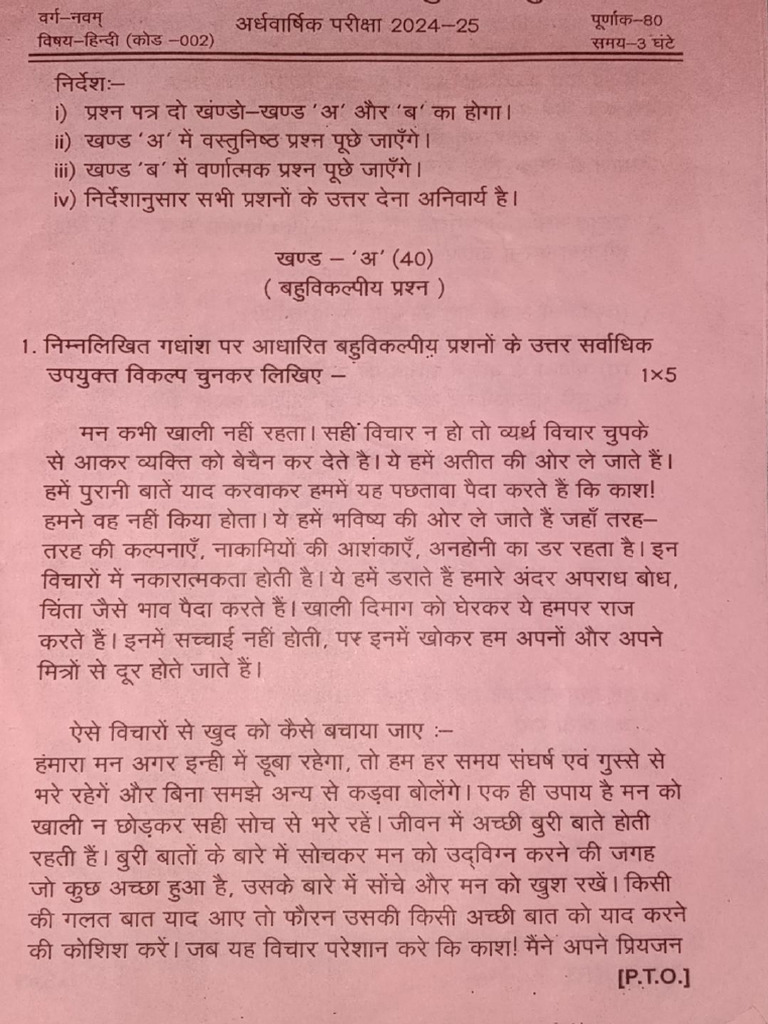 वर्ग–नवम्
अर्धवार्षिक परीक्षा 2024–25
पूर्णाक–80
विषय–हिन्दी (कोड –002)
समय–3 घंटे
निर्देशः–
i) प्रश्न पत्र दो खंण्डो–खण्ड 'अ' और 'ब' का होगा।
ii) खण्ड 'अ' में वस्तुनिष्ठ प्रश्न पूछे जाएँगे।
iii) खण्ड 'ब' में वर्णात्मक प्रश्न पूछे जाएँगे।
iv) निर्देशानुसार सभी प्रशनों के उत्तर देना अनिवार्य है।
खण्ड – 'अ' (40)
( बहुविकल्पीय प्रश्न )
1. निम्नलिखित गधांश पर आधारित बहुविकल्पीय प्रशनों के उत्तर सर्वाधिक
उपयुक्त विकल्प चुनकर लिखिए – 1×5
मन कभी खाली नहीं रहता। सही विचार न हो तो व्यर्थ विचार चुपके
से आकर व्यक्ति को बेचैन कर देते है। ये हमें अतीत की ओर ले जाते हैं।
हमें पुरानी बातें याद करवाकर हममें यह पछतावा पैदा करते हैं कि काश!
हमने वह नहीं किया होता। ये हमें भविष्य की ओर ले जाते हैं जहाँ तरह–
तरह की कल्पनाएँ, नाकामियों की आशंकाएँ, अनहोनी का डर रहता है। इन
विचारों में नकारात्मकता होती है। ये हमें डराते हैं हमारे अंदर अपराध बोध,
चिंता जैसे भाव पैदा करते हैं। खाली दिमाग को घेरकर ये हमपर राज
करते हैं। इनमें सच्चाई नहीं होती, पर इनमें खोकर हम अपनों और अपने
मित्रों से दूर होते जाते हैं।
ऐसे विचारों से खुद को कैसे बचाया जाए :–
हंमारा मन अगर इन्ही में डूबा रहेगा, तो हम हर समय संघर्ष एवं गुस्से से
भरे रहेगें और बिना समझे अन्य से कड़वा बोलेंगे। एक ही उपाय है मन को
खाली न छोड़कर सही सोच से भरे रहें। जीवन में अच्छी बुरी बाते होती
रहती हैं। बुरी बातों के बारे में सोचकर मन को उद्विग्न करने की जगह
जो कुछ अच्छा हुआ है, उसके बारे में सोंचे और मन को खुश रखें। किसी
की गलत बात याद आए तो फौरन उसकी किसी अच्छी बात को याद करने
की कोशिश करें। जब यह विचार परेशान करे कि काश! मैंने अपने प्रियजन
[P.T.O.]